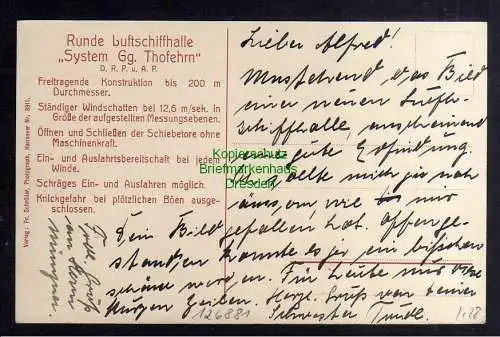 Runde Luftschiffhalle
„System Gg. Thofehrn“
D. R. P. u. A. P.
Freitragende Konstruktion bis 200 m
Durchmesser.
Ständiger Windschatten bei 12,6 m/sek. in
Größe der aufgestellten Messungsebenen.
Öffnen und Schließen der Schiebetore ohne
Maschinenkraft.
Ein- und Ausfahrtsbereitschaft bei jedem
Winde.
Schräges Ein- und Ausfahren möglich.
Knickgefahr bei plötzlichen Böen ausge-
schlossen.
Verlag: Fr. Photograph, Hannover Nr.
Lieber Alfred!
Umstehend das Bild
einer neuen Luft-
schiffhalle, anscheinend
eine gute Erfindung.
Was sollte mich ja
wie
Dein Bild gefallen hat. Offen ge-
standen, konnte es ja ein bißchen
schöner werden. Für heute nur diese
kurzen Zeilen. Herzl. Gruß von Deiner
Schwester Trudl.
Kopierschutz
Briefmarkenhaus
Dresden
126881
1.28